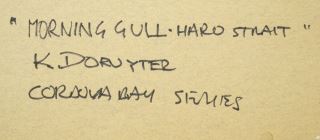 "MORNING GULL·HARO STRAIT"
K. DORUYTER
CORDOVA BAY SERIES